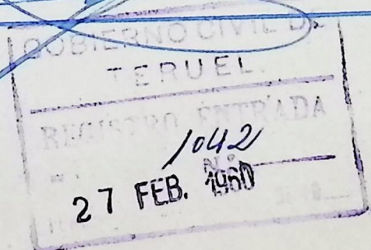 GOBIERNO CIVIL DE
TERUEL
REGISTRO ENTRADA
1042
Nº
27 FEB. 1960